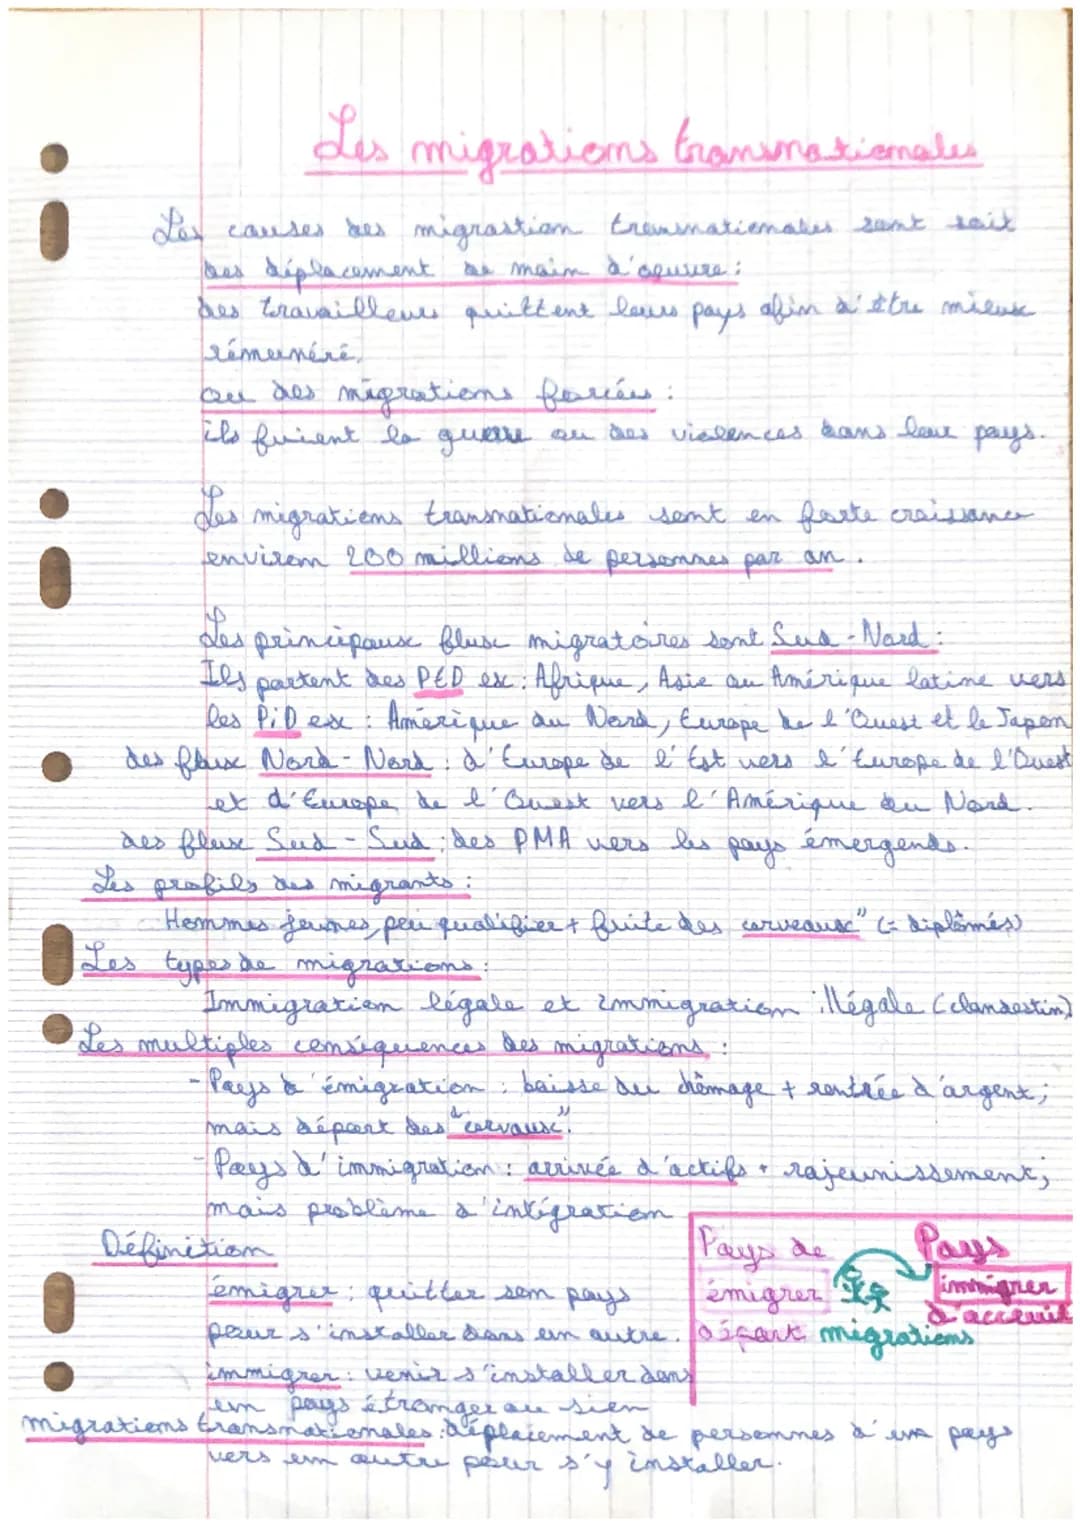 Les migrations transnationales
Les causes des migrastion transnationales sont soit
des déplacement de main d'oeuvre :
des travailleurs quittent leurs pays afin d'être mieux
rémunéré.
ou des migrations forcées :
ils fuient la guerre ou des violences dans leur pays.
Les migrations transnationales sont en forte croissance
environ 200 millions de personnes par an.
Les principaux flux migratoires sont Sud - Nord :
Ils partent des PED ex : Afrique, Asie ou Amérique latine vers
les PiD ex : Amérique du Nord, Europe de l'Ouest et le Japon
des flux Nord - Nord : d'Europe de l'Est vers l'Europe de l'Ouest
et d'Europe de l'Ouest vers l'Amérique du Nord.
des flux Sud - Sud : des PMA vers les pays émergends.
Les profils des migrants :
Hommes jeunes, peu qualifier + fruite des cerveaux" (= diplômés)
Les types de migrations :
Immigration légale et immigration illégale (clandestin)
Les multiples conséquences des migrations :
- Pays d'émigration : baisse du chômage + rentrée d'argent ;
mais départ des "cervaux".
- Pays d'immigration : arrivée d'actifs + rajeunissement ;
mais problème d'intégration
Définition
émigrer : quitter son pays
pour s'installer dans un autre.
immigrer : venir s'installer dans
un pays étranger au sien
migrations transnationales : déplacement de personnes d'un pays
vers un autre pour s'y installer.
Pays de
émigrer
départ
migrations
Pays
immigrer
d'accueil